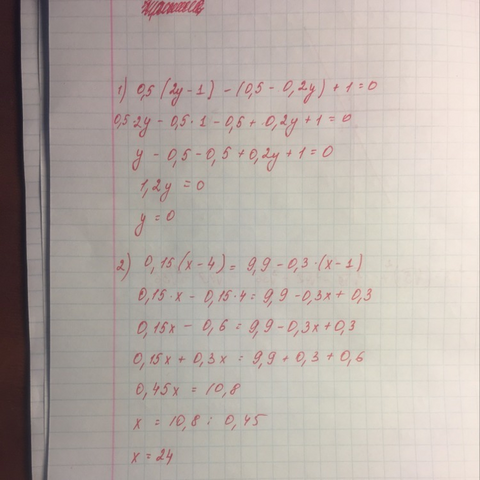 1) 0,5 (2y - 1) - (0,5 - 0,2y) + 1 = 0
0,5·2y - 0,5·1 - 0,5 + 0,2y + 1 = 0
y - 0,5 - 0,5 + 0,2y + 1 = 0
1,2y = 0
y = 0
2) 0,15(x - 4) = 9,9 - 0,3·(x - 1)
0,15·x - 0,15·4 = 9,9 - 0,3x + 0,3
0,15x - 0,6 = 9,9 - 0,3x + 0,3
0,15x + 0,3x = 9,9 + 0,3 + 0,6
0,45x = 10,8
x = 10,8 : 0,45
x = 24